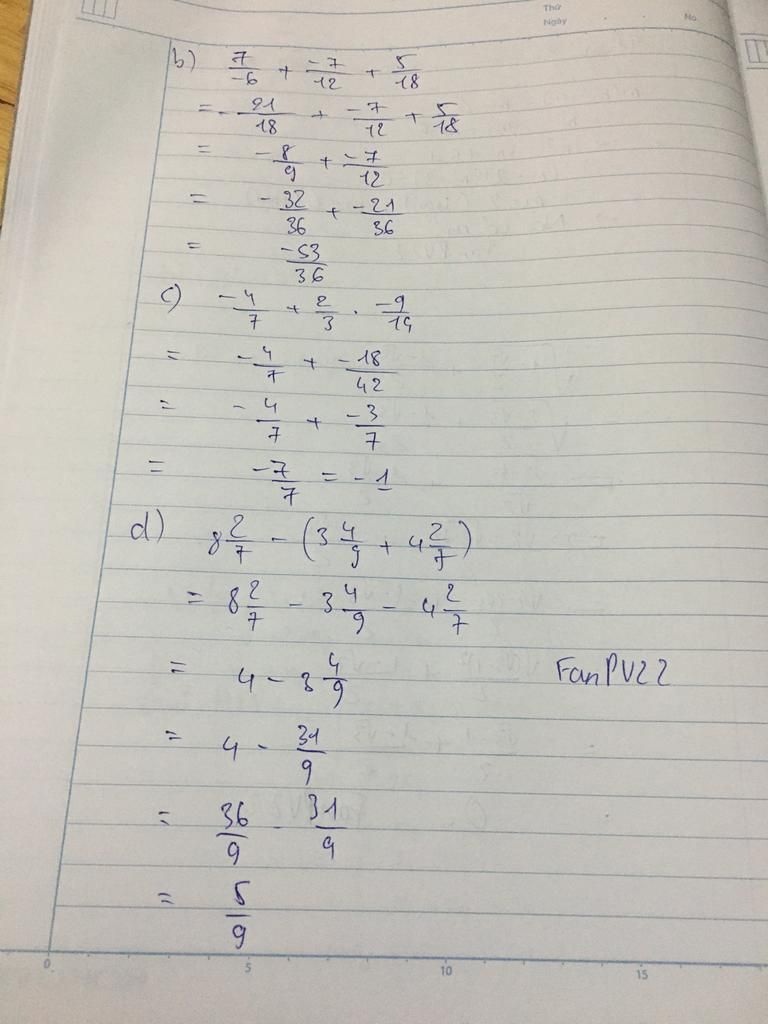 Thứ
Ngày
No.
b) 7/-6 + -7/12 + 5/18
= -21/18 + -7/12 + 5/18
= -8/9 + -7/12
= -32/36 + -21/36
= -53/36
c) -4/7 + 2/3 . -9/14
= -4/7 + -18/42
= -4/7 + -3/7
= -7/7 = -1
d) 8 2/7 - (3 4/9 + 4 2/7)
= 8 2/7 - 3 4/9 - 4 2/7
= 4 - 3 4/9
FanPV22
= 4 - 31/9
= 36/9 - 31/9
= 5/9
0 5 10 15